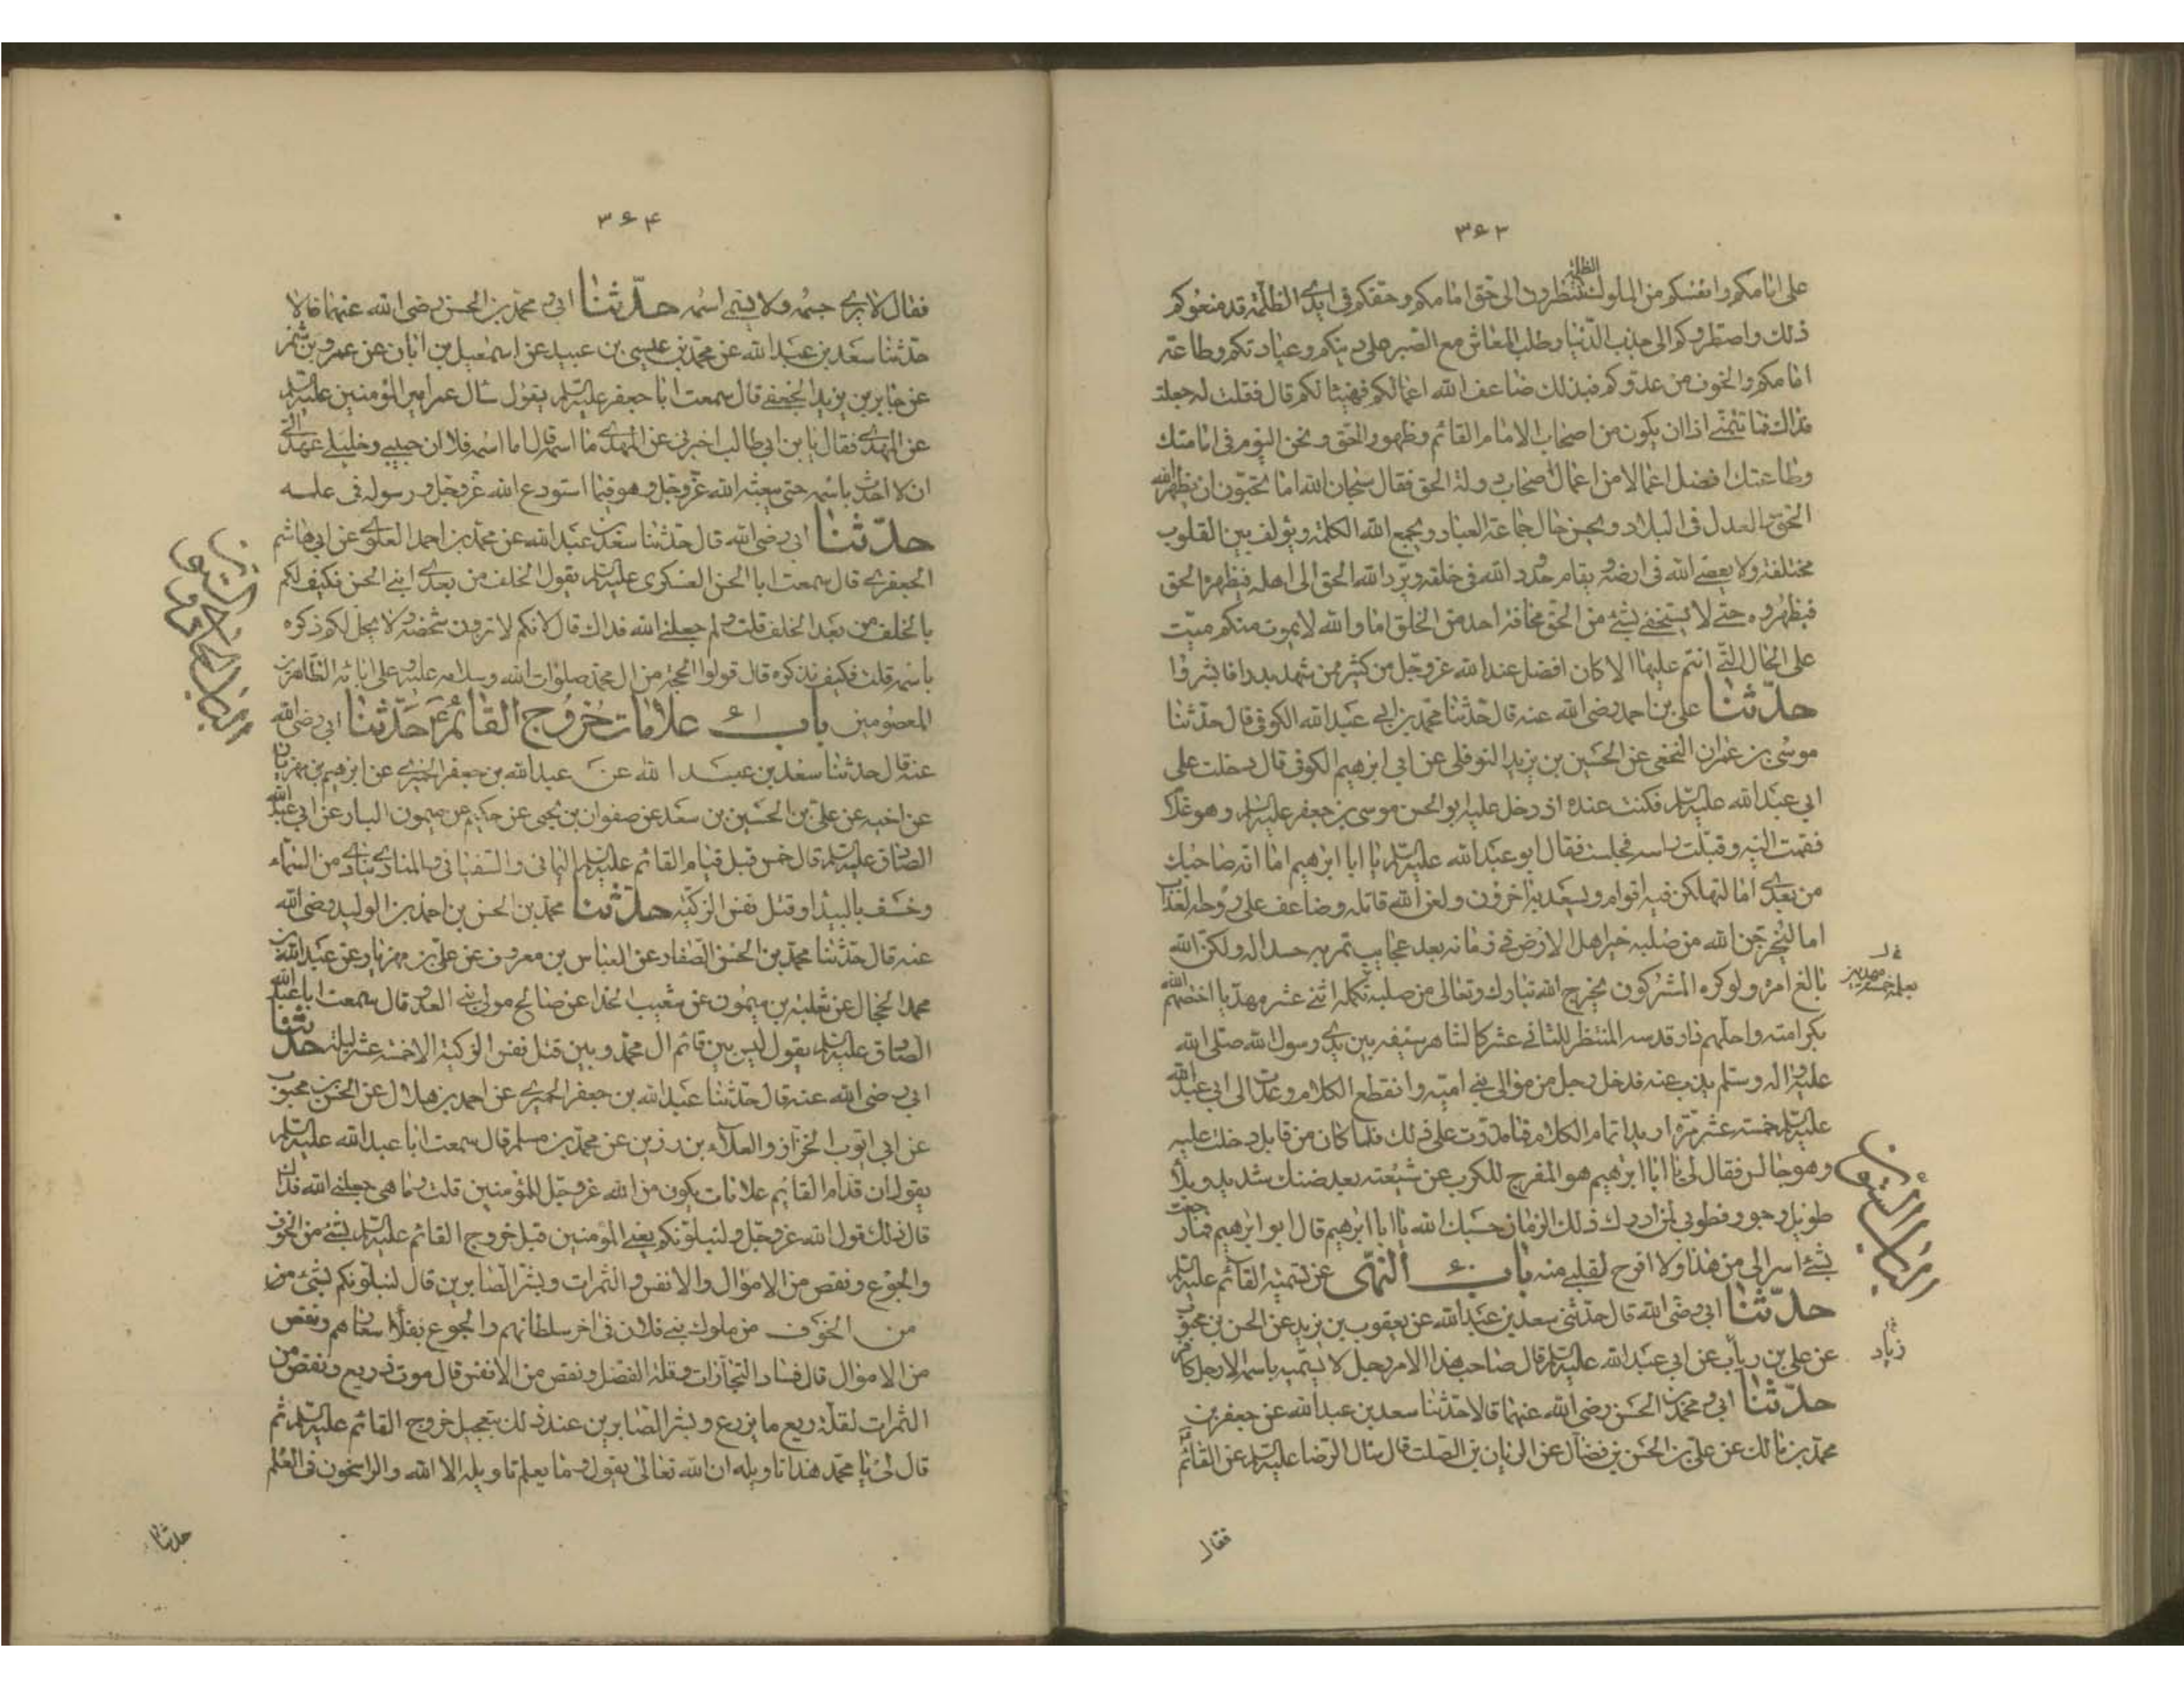 ۳۶۳
على امامكم وانفسكم من الملوك الظلمة تنتظرون الى حق امامكم وحقكم فى ايدى الظلمة قد منعوكم
ذلك واضطروكم الى جذب الدنيا وطلب المعاش مع الصبر على دينكم وعبادتكم وطاعة
امامكم والخوف من عدوكم فبذلك ضاعف الله اعمالكم فهنيئا لكم قال فقلت له جعلت
فداك فما نتمنى اذا ان نكون من اصحاب الامام القائم وظهور الحق ونحن اليوم فى امامتك
وطاعتك افضل اعمالا من اعمال اصحاب دولة الحق فقال سبحان الله اما تحبون ان يظهر الله
الحق والعدل فى البلاد ويحسن حال عامة العباد ويجمع الله الكلمة ويؤلف بين القلوب
مختلفة ولا يعصى الله فى ارضه ويقام حدود الله فى خلقه ويرد الله الحق الى اهله فيظهر الحق
فيظهروه حتى لا يستخفى بشئ من الحق مخافة احد من الخلق اما والله لا يموت منكم ميت
على الحال التى انتم عليها الا كان افضل عند الله عز وجل من كثير ممن شهد بدرا فابشروا
حدثنا على بن احمد رضى الله عنه قال حدثنا محمد بن ابى عبد الله الكوفى قال حدثنا
موسى بن عمران النخعى عن الحسين بن يزيد النوفلى عن ابى ابرهيم الكوفى قال دخلت على
ابى عبد الله عليه السلام فكنت عنده اذ دخل عليه ابو الحسن موسى بن جعفر عليه السلام وهو غلام
فقمت اليه وقبلت راسه فجلست فقال ابو عبد الله عليه السلام يا ابا ابرهيم اما انه صاحبك
من بعدى اما ليهلكن فيه اقوام ويسعد به اخرون ولعن الله قاتله وضاعف على روحه العذاب
اما ليخرجن الله من صلبه خير اهل الارض فى زمانه بعد عجايب تمر به حسدا له ولكن الله
بالغ امره ولو كره المشركون يخرج الله تبارك وتعالى من صلبه تكملة اثنى عشر مهديا اختصهم الله
بكرامته واحلهم دار قدسه المنتظر للثانى عشر كالشاهر سيفه بين يدى رسول الله صلى الله
عليه واله وسلم يذب عنه فدخل رجل من موالى بنى امية وانقطع الكلام وعدت الى ابى عبد الله
عليه السلام خمسة عشر مرة اريد اتمام الكلام فما قدرت على ذلك فلما كان من قابل دخلت عليه
وهو جالس فقال لى يا ابا ابرهيم هو المفرج للكرب عن شيعته بعد ضنك شديد وبلاء
طويل وجور فطوبى لمن ادرك ذلك الزمان حسبك الله يا ابا ابرهيم قال ابو ابرهيم فما رجعت
بشئ اسر الى من هذا ولا افرح لقلبى منه باب ۶۰ النهى عن تسمية القائم عليه السلام
حدثنا ابى رضى الله قال حدثنى سعد بن عبد الله عن يعقوب بن يزيد عن الحسن بن محبوب
عن على بن رياب عن ابى عبد الله عليه السلام قال صاحب هذا الامر رجل لا يسميه باسمه الا رجل كافر
حدثنا ابى ومحمد بن الحسن رضى الله عنهما قالا حدثنا سعد بن عبد الله عن جعفر بن
محمد بن مالك عن على بن الحسن بن فضال عن الريان بن الصلت قال سال الرضا عليه السلام عن القائم
زياد
فقال
۳۶۴
فقال لا يرى جسمه ولا يسمى اسمه حدثنا ابى ومحمد بن الحسن رضى الله عنهما قالا
حدثنا سعد بن عبد الله عن محمد بن عيسى بن عبيد عن اسمعيل بن ابان عن عمرو بن شمر
عن جابر بن يزيد الجعفى قال سمعت ابا جعفر عليه السلام يقول سال عمر امير المؤمنين عليه السلام
عن المهدى فقال يا بن ابى طالب اخبرنى عن المهدى ما اسمه قال اما اسمه فلا ان حبيبى وخليلى عهد الى
ان لا احدث باسمه حتى يبعثه الله عز وجل وهو فيما استودع الله عز وجل رسوله فى علمه
حدثنا ابى رضى الله قال حدثنا سعد بن عبد الله عن محمد بن احمد العلوى عن ابى هاشم
الجعفرى قال سمعت ابا الحسن العسكرى عليه السلام يقول الخلف من بعدى ابنى الحسن فكيف لكم
بالخلف من بعد الخلف قلت ولم جعلنى الله فداك قال لانكم لا ترون شخصه ولا يحل لكم ذكره
باسمه قلت فكيف نذكره قال قولوا الحجة من ال محمد صلوات الله وسلامه عليه وعلى ابائه الطاهرين
المعصومين باب ۶۱ علامات خروج القائم ع حدثنا ابى رضى الله
عنه قال حدثنا سعد بن عبد الله عن عبد الله بن جعفر الحميرى عن ابرهيم بن مهزيار
عن اخيه عن على بن الحسين بن سعد عن صفوان بن يحيى عن حكيم عن ميمون البان عن ابى عبد الله
الصادق عليه السلام قال خمس قبل قيام القائم عليه السلام اليمانى والسفيانى والمنادى ينادى من السماء
وخسف بالبيدا وقتل نفس الزكية حدثنا محمد بن الحسن بن احمد بن الوليد رضى الله
عنه قال حدثنا محمد بن الحسن الصفار عن العباس بن معروف عن على بن مهزيار عن عبد الله بن
محمد الحجال عن ثعلبة بن ميمون عن شعيب الحذا عن صالح مولى بنى العدرا قال سمعت ابا عبد الله
الصادق عليه السلام يقول ليس بين قائم ال محمد وبين قتل نفس الزكية الا خمسة عشر ليلة حدثنا
ابى رضى الله عنه قال حدثنا عبد الله بن جعفر الحميرى عن احمد بن هلال عن الحسن بن محبوب
عن ابى ايوب الخزاز والعلاء بن رزين عن محمد بن مسلم قال سمعت ابا عبد الله عليه السلام
يقول ان قدام القائم علامات يكون من الله عز وجل للمؤمنين قلت وما هى جعلنى الله فداك
قال ذلك قول الله عز وجل ولنبلونكم يعنى المؤمنين قبل خروج القائم عليه السلام بشئ من الخوف
والجوع ونقص من الاموال والانفس والثمرات وبشر الصابرين قال لنبلونكم بشئ من
من الخوف من ملوك بنى فلان فى اخر سلطانهم والجوع بغلاء اسعارهم ونقص
من الاموال قال فساد التجارات وقلة الفضل ونقص من الانفس قال موت ذريع ونقص من
الثمرات لقلة ريع ما يزرع وبشر الصابرين عند ذلك بتعجيل خروج القائم عليه السلام ثم
قال لى يا محمد هذا تاويله ان الله تعالى يقول وما يعلم تاويله الا الله والراسخون فى العلم
حدثنا